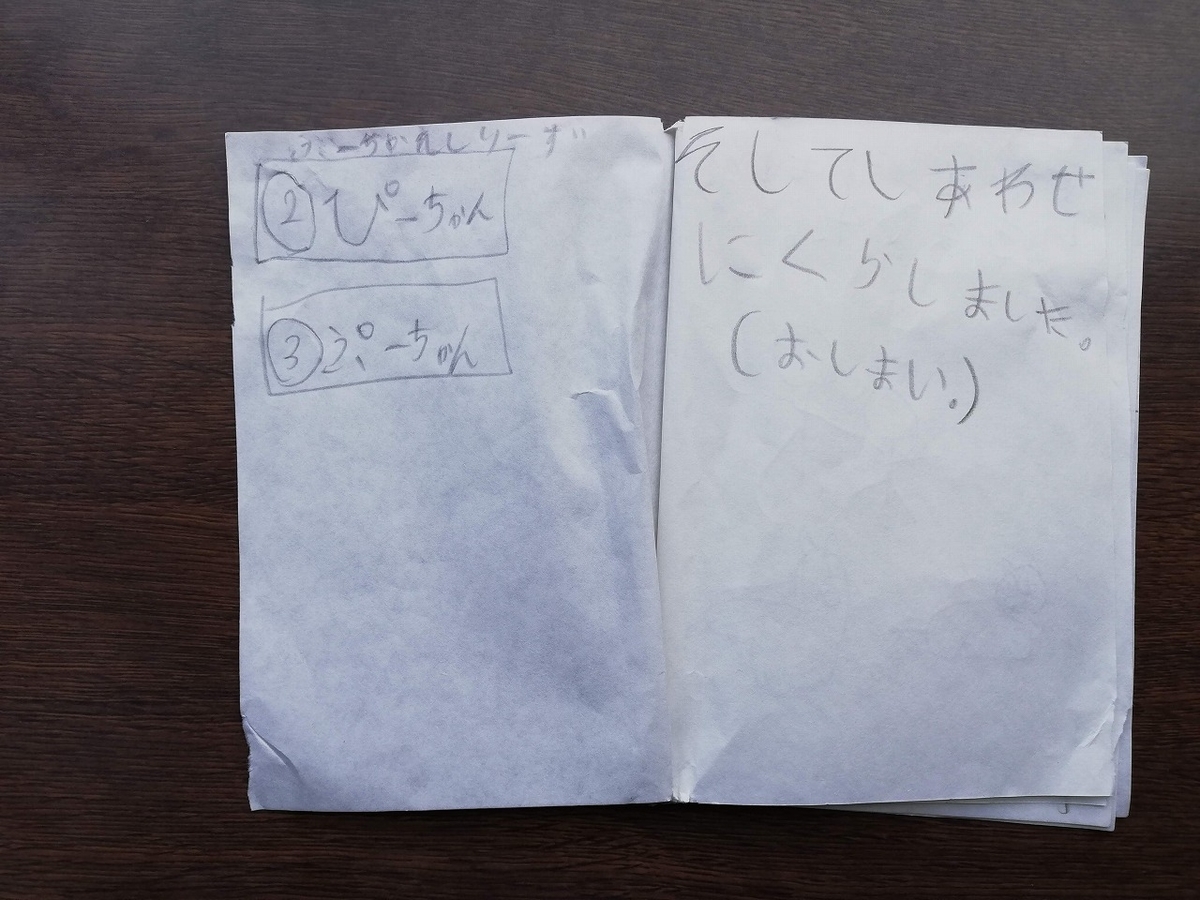 しりーず
②ぴーちゃん
③ぷーちゃん
そしてしあわせ
にくらしました。
(おしまい。)